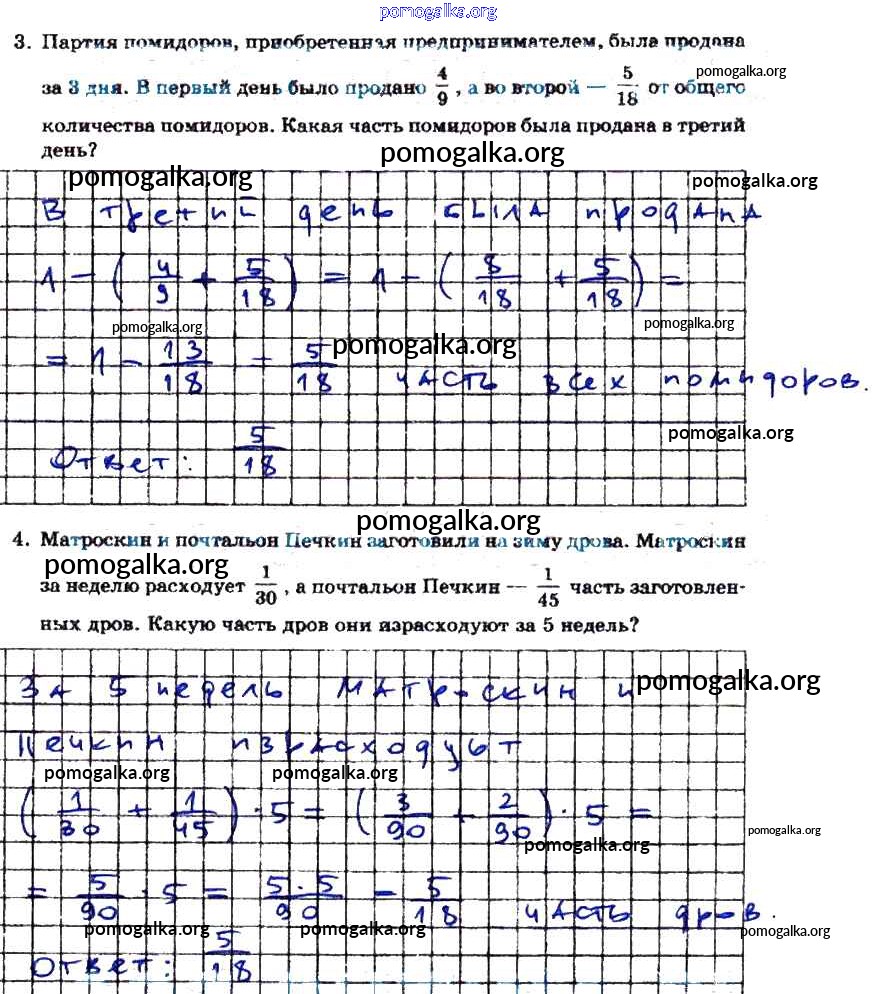 pomogalka.org
3. Партия помидоров, приобретенная предпринимателем, была продана
за 3 дня. В первый день было продано 4/9, а во второй — 5/18 от общего
pomogalka.org
количества помидоров. Какая часть помидоров была продана в третий
день?
pomogalka.org
pomogalka.org
pomogalka.org
В третий день была продана
1 - (4/9 + 5/18) = 1 - (8/18 + 5/18) =
pomogalka.org
pomogalka.org
= 1 - 13/18 = 5/18 часть всех помидоров.
pomogalka.org
pomogalka.org
Ответ: 5/18
pomogalka.org
4. Матроскин и почтальон Печкин заготовили на зиму дрова. Матроскин
pomogalka.org
за неделю расходует 1/30, а почтальон Печкин — 1/45 часть заготовлен-
ных дров. Какую часть дров они израсходуют за 5 недель?
За 5 недель Матроскин и
pomogalka.org
Печкин израсходуют
pomogalka.org
pomogalka.org
(1/30 + 1/45) · 5 = (3/90 + 2/90) · 5 =
pomogalka.org
pomogalka.org
= 5/90 · 5 = 5·5/90 = 5/18 часть дров.
pomogalka.org
pomogalka.org
pomogalka.org
Ответ: 5/18